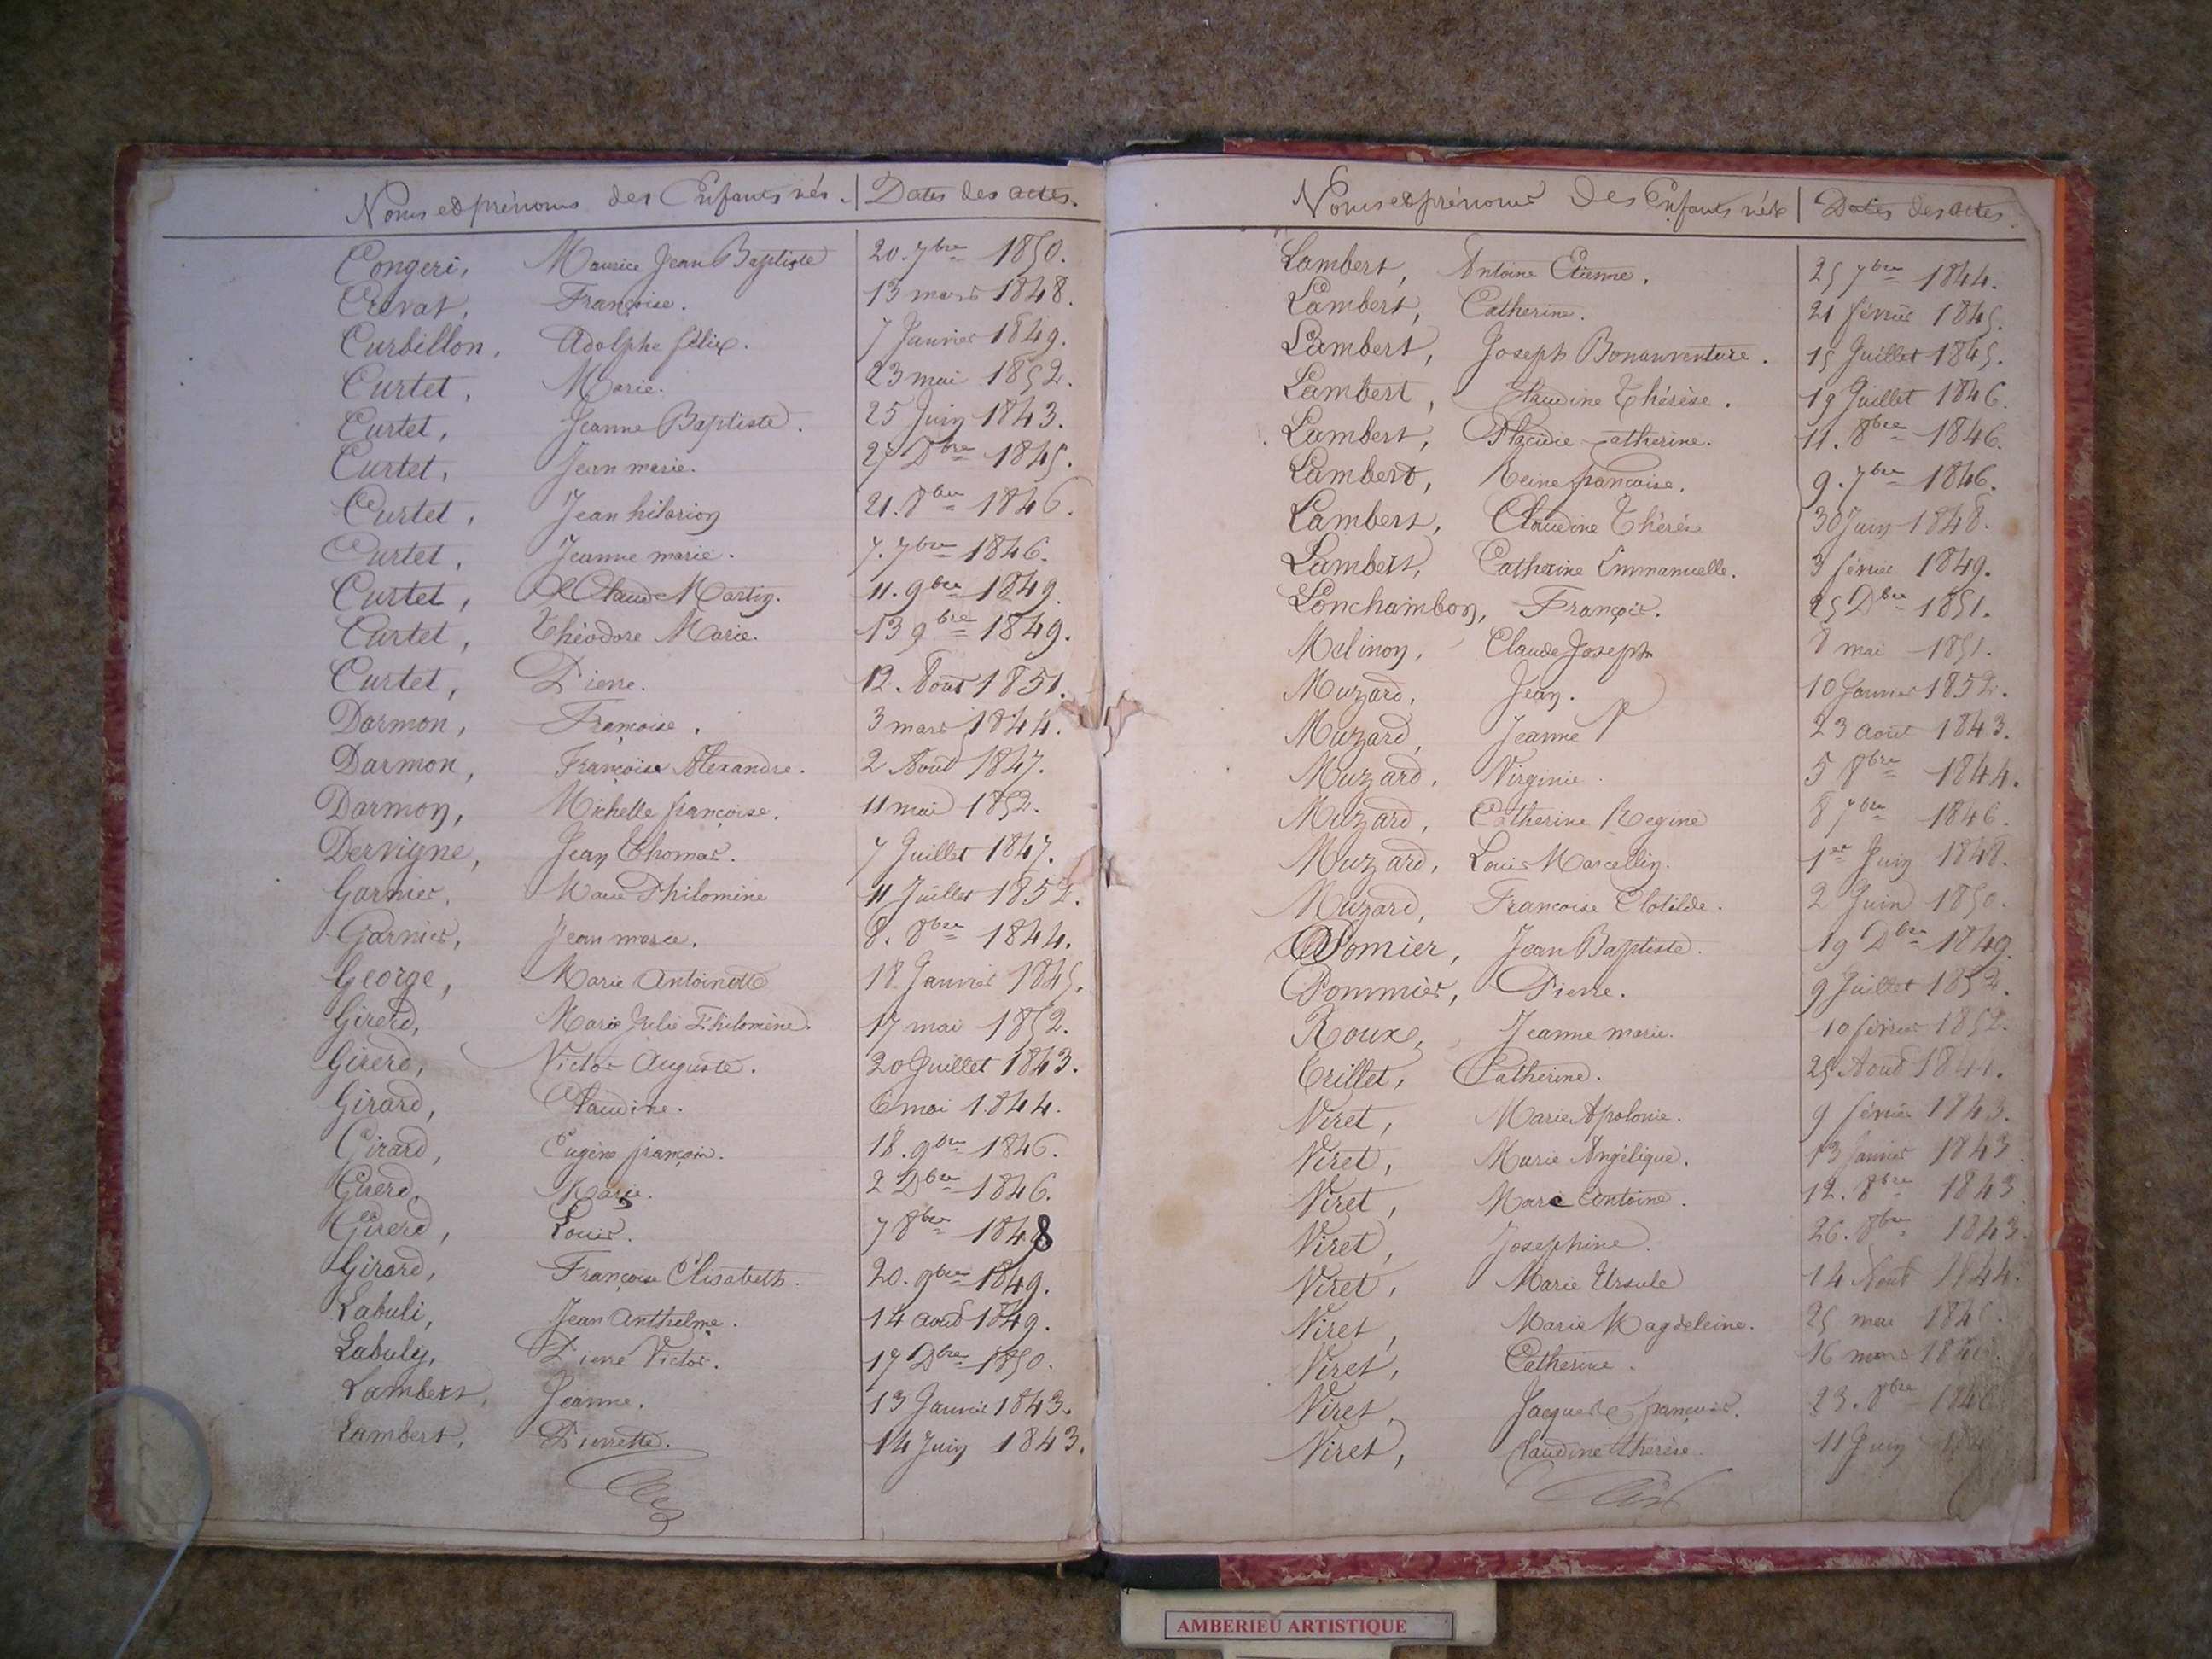 Noms et prénoms des Enfants nés. Dates des actes.
Congeri, Maurice Jean Baptiste 20. 7bre 1850.
Crevat, Françoise. 13 mars 1848.
Curbillon, Adolphe félix. 7 Janvier 1849.
Curtet, Marie. 23 mai 1852.
Curtet, Jeanne Baptiste. 25 Juin 1843.
Curtet, Jean marie. 27 Dbre 1845.
Curtet, Jean hilarion 21. 8bre 1846.
Curtet, Jeanne marie. 7. 7bre 1846.
Curtet, Claude Martin. 11. 9bre 1849.
Curtet, Théodore Marie. 13 9bre 1849.
Curtet, Pierre. 12. Aout 1851.
Darmon, Françoise. 3 mars 1844.
Darmon, Françoise Alexandre. 2 Aout 1847.
Darmon, Michelle françoise. 11 mai 1852.
Dervigne, Jean Thomas. 7 Juillet 1847.
Garnier, Marie Philomine 11 Juillet 1852.
Garnier, Jean marie. 8. 8bre 1844.
George, Marie Antoinette 18 Janvier 1845.
Girerd, Marie Julie Philomène. 17 mai 1852.
Girerd, Victor Auguste. 20 Juillet 1843.
Girard, Claudine. 6 mai 1844.
Girard, Eugène françois. 18. 9bre 1846.
Girerd, Marie. 2 Dbre 1846.
Girerd, Louis. 7 8bre 1848
Girard, Françoise Elisabeth. 20. 9bre 1849.
Labuli, Jean Anthelme. 14 aout 1849.
Labuly, Pierre Victor. 17 Dbre 1850.
Lambert, Jeanne. 13 Janvier 1843.
Lambert, Pierrette. 14 Juin 1843.
Noms et prénoms des Enfants nés Dates des actes.
Lambert, Antoine Etienne. 25 7bre 1844.
Lambert, Catherine. 21 février 1845.
Lambert, Joseph Bonnaventure. 15 Juillet 1845.
Lambert, Claudine Thérèse. 19 Juillet 1846.
Lambert, Placidie Catherine. 11. 8bre 1846.
Lambert, Reine françoise. 9. 7bre 1846.
Lambert, Claudine Thérèse 30 Juin 1848.
Lambert, Catherine Emmanuelle. 3 février 1849.
Lonchambon, François. 25 Dbre 1851.
Molinon, Claude Joseph 8 mai 1851.
Muzard, Jean. 10 Janvier 1852.
Muzard, Jeanne 23 aout 1843.
Muzard, Virginie. 5 8bre 1844.
Muzard, Catherine Regine 8 7bre 1846.
Muzard, Louis Marcellin. 1er Juin 1848.
Muzard, Francoise Clotilde. 2 Juin 1850.
Pomier, Jean Baptiste. 19 Dbre 1849.
Pommier, Pierre. 9 Juillet 1852.
Roux, Jeanne marie. 10 février 1852.
Trillet, Catherine. 25 Aout 1844.
Viret, Marie Apolonie. 9 février 1843.
Viret, Marie Angélique. 13 Janvier 1843
Viret, Marc Antoine. 12. 8bre 1843
Viret, Josephine. 26. 8bre 1843.
Viret, Marie Ursule 14 Aout 1844.
Viret, Marie Magdeleine. 25 mai
Viret, Catherine. 16 mars
Viret, Jacques françois. 23. 8bre
Viret, Claudine thérèse. 11 Juin
AMBERIEU ARTISTIQUE